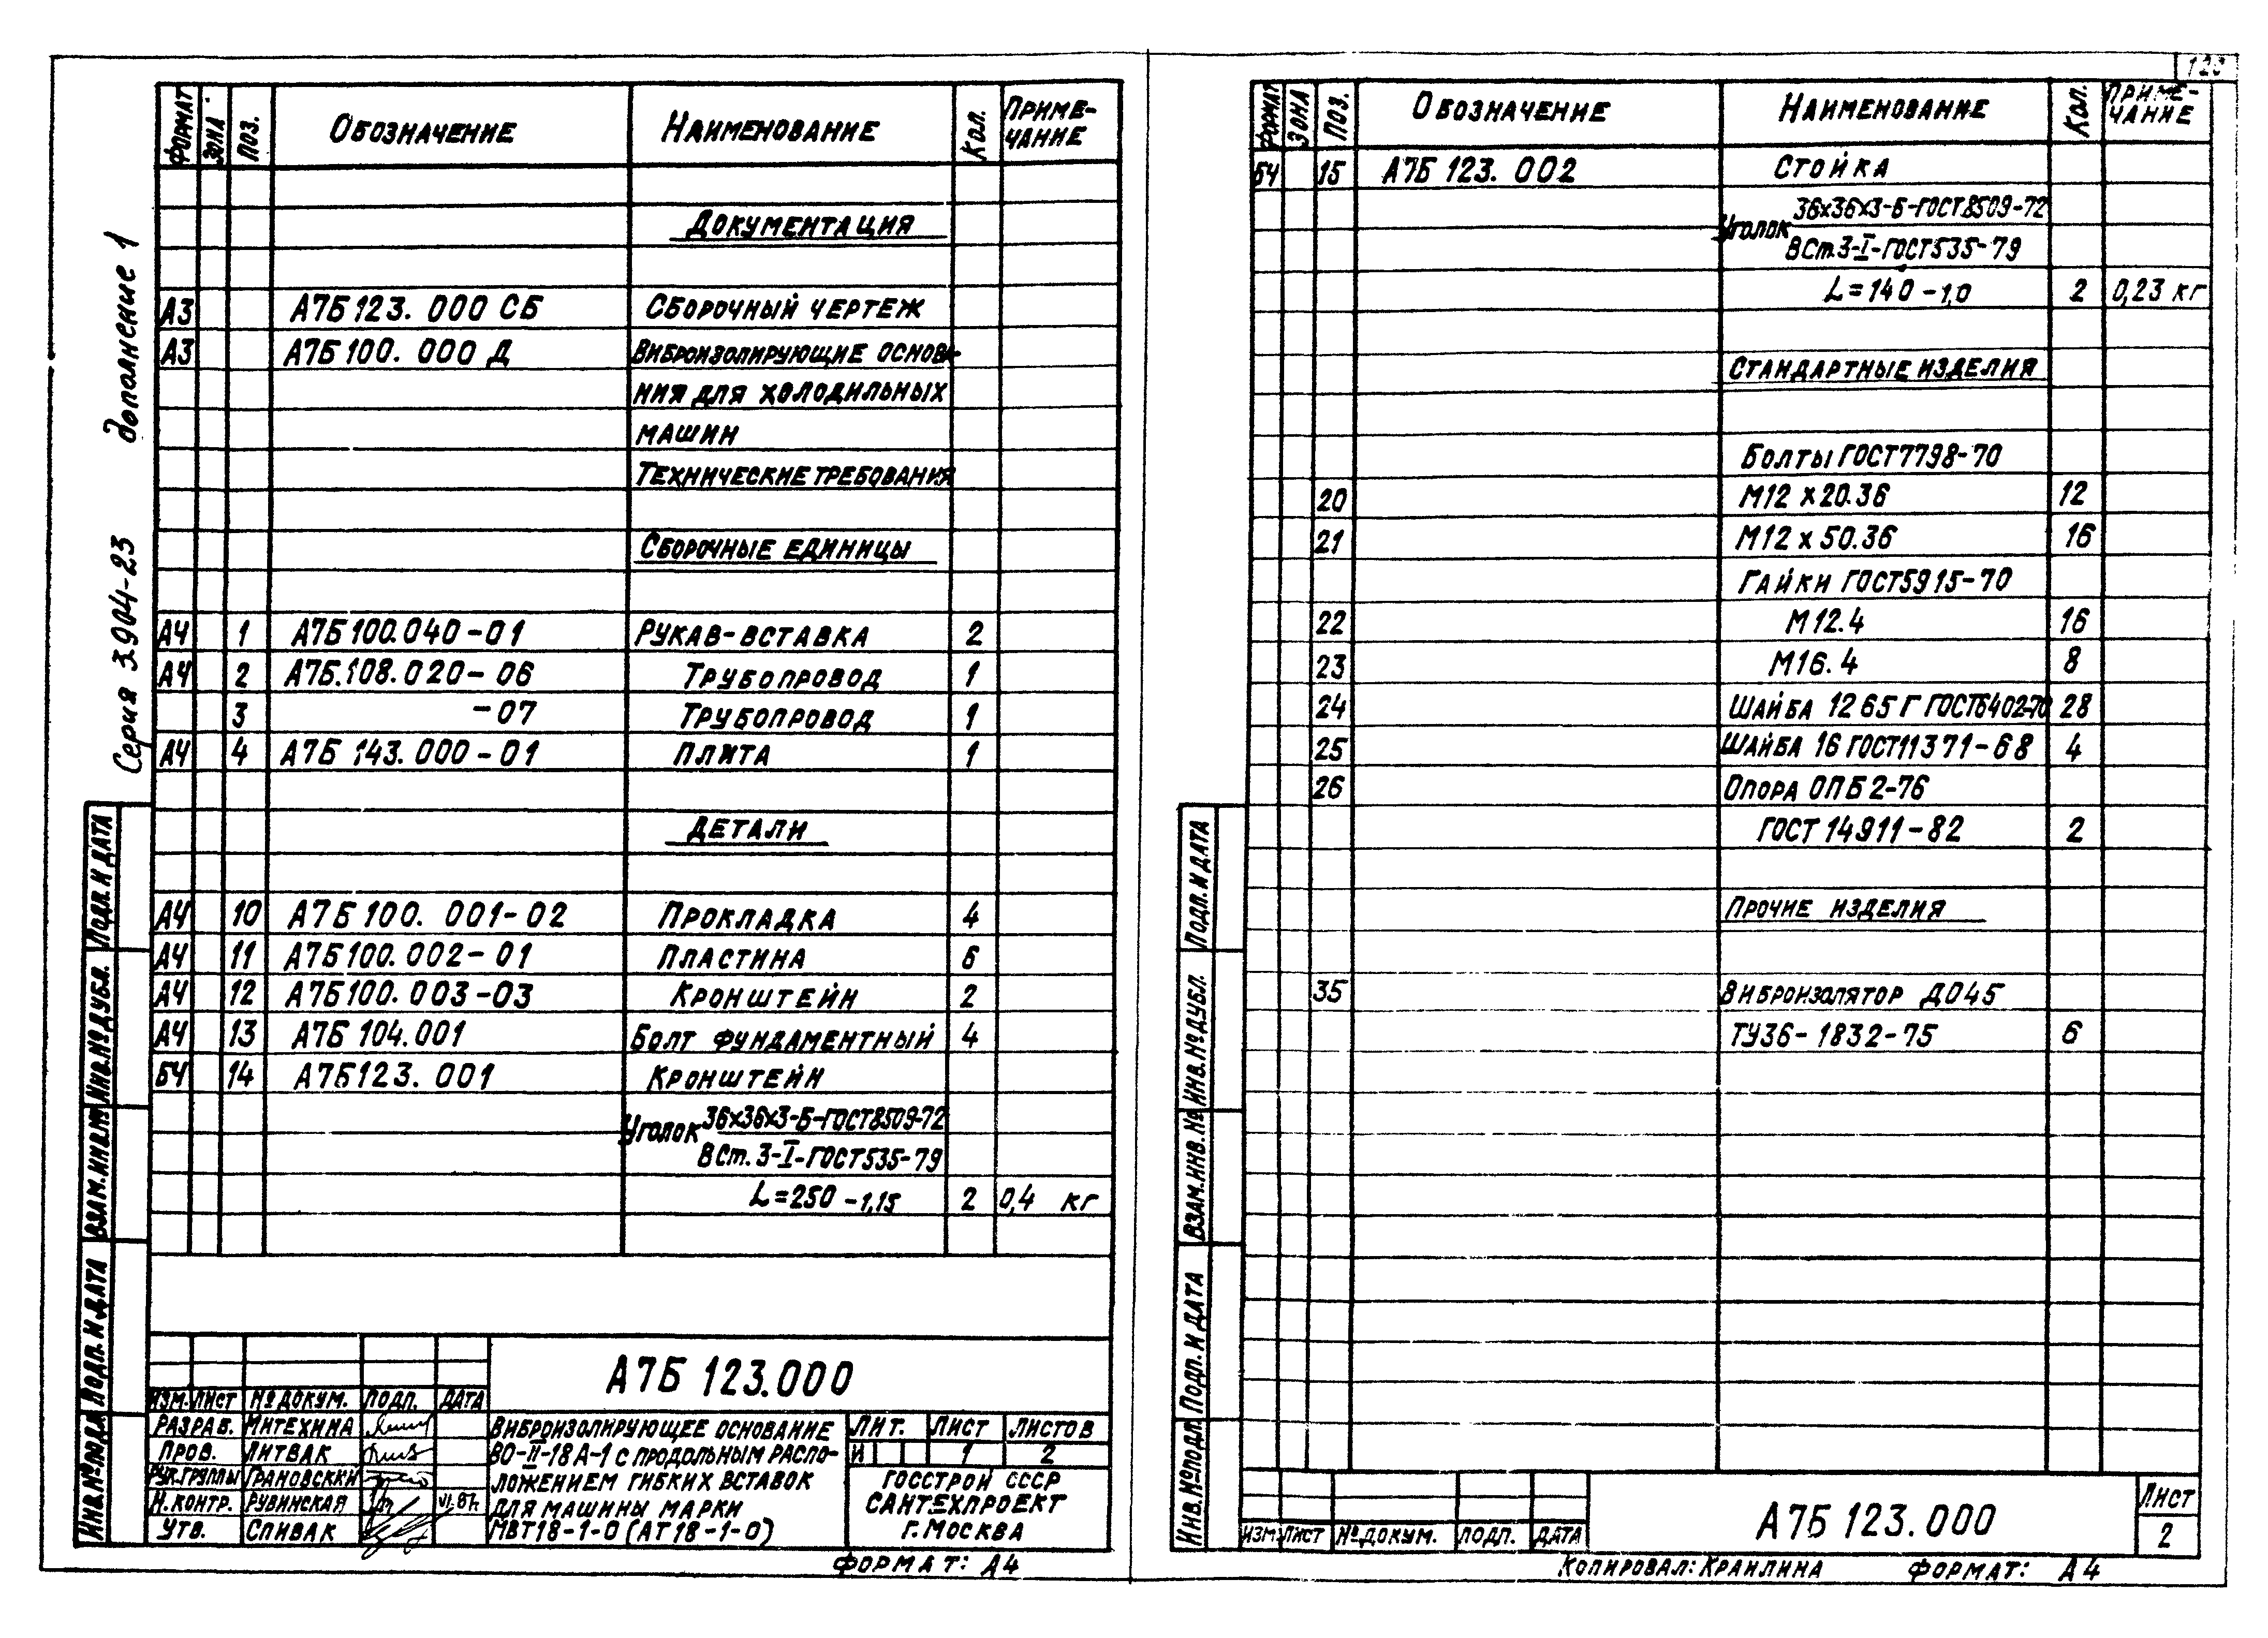 Серия 3.904-23 дополнение 1
ФОРМАТ ЗОНА ПОЗ. ОБОЗНАЧЕНИЕ НАИМЕНОВАНИЕ КОЛ. ПРИМЕ-
ЧАНИЕ
ДОКУМЕНТАЦИЯ
А3 А7Б123.000 СБ СБОРОЧНЫЙ ЧЕРТЕЖ
А3 А7Б100.000 Д ВИБРОИЗОЛИРУЮЩИЕ ОСНОВА-
НИЯ ДЛЯ ХОЛОДИЛЬНЫХ
МАШИН
ТЕХНИЧЕСКИЕ ТРЕБОВАНИЯ
СБОРОЧНЫЕ ЕДИНИЦЫ
А4 1 А7Б100.040-01 РУКАВ-ВСТАВКА 2
А4 2 А7Б.108.020-06 ТРУБОПРОВОД 1
3 -07 ТРУБОПРОВОД 1
А4 4 А7Б 143.000-01 ПЛИТА 1
ДЕТАЛИ
А4 10 А7Б100.001-02 ПРОКЛАДКА 4
А4 11 А7Б100.002-01 ПЛАСТИНА 6
А4 12 А7Б100.003-03 КРОНШТЕЙН 2
А4 13 А7Б 104.001 БОЛТ ФУНДАМЕНТНЫЙ 4
БЧ 14 А7Б123.001 КРОНШТЕЙН
УГОЛОК 36х36х3-Б-ГОСТ8509-72
ВСт.3-I-ГОСТ535-79
L=250-1,15 2 0,4 кг
ИНВ.№ПОДЛ ПОДП. И ДАТА ВЗАМ.ИНВ.№ ИНВ.№ДУБЛ. ПОДП. И ДАТА
А7Б 123.000
ИЗМ. ЛИСТ № ДОКУМ. ПОДП. ДАТА
РАЗРАБ. МИТЕХИНА
ПРОВ. ЛИТВАК
РУК.ГРУППЫ ГРАНОВСКИЙ
Н.КОНТР. РУБИНСКАЯ VI.87г.
УТВ. СПИВАК
ВИБРОИЗОЛИРУЮЩЕЕ ОСНОВАНИЕ
ВО-II-18А-1 С ПРОДОЛЬНЫМ РАСПО-
ЛОЖЕНИЕМ ГИБКИХ ВСТАВОК
ДЛЯ МАШИНЫ МАРКИ
МВТ18-1-0 (АТ18-1-0)
ЛИТ. ЛИСТ ЛИСТОВ
И 1 2
ГОССТРОЙ СССР
САНТЕХПРОЕКТ
Г. МОСКВА
ФОРМАТ: А4
123
ФОРМАТ ЗОНА ПОЗ. ОБОЗНАЧЕНИЕ НАИМЕНОВАНИЕ КОЛ. ПРИМЕ-
ЧАНИЕ
БЧ 15 А7Б 123.002 СТОЙКА
УГОЛОК 36х36х3-Б-ГОСТ8509-72
ВСт.3-I-ГОСТ535-79
L=140-1,0 2 0,23 кг
СТАНДАРТНЫЕ ИЗДЕЛИЯ
БОЛТЫ ГОСТ7798-70
20 М12х20.36 12
21 М12х50.36 16
ГАЙКИ ГОСТ5915-70
22 М12.4 16
23 М16.4 8
24 ШАЙБА 12 65Г ГОСТ6402-70 28
25 ШАЙБА 16 ГОСТ11371-68 4
26 ОПОРА ОПБ2-76
ГОСТ 14911-82 2
ПРОЧИЕ ИЗДЕЛИЯ
35 ВИБРОИЗОЛЯТОР ДО45
ТУ36-1832-75 6
ИНВ.№ПОДЛ ПОДП. И ДАТА ВЗАМ.ИНВ.№ ИНВ.№ДУБЛ. ПОДП. И ДАТА
ИЗМ. ЛИСТ № ДОКУМ. ПОДП. ДАТА
А7Б 123.000
ЛИСТ
2
КОПИРОВАЛ: КРАИЛИНА ФОРМАТ: А4